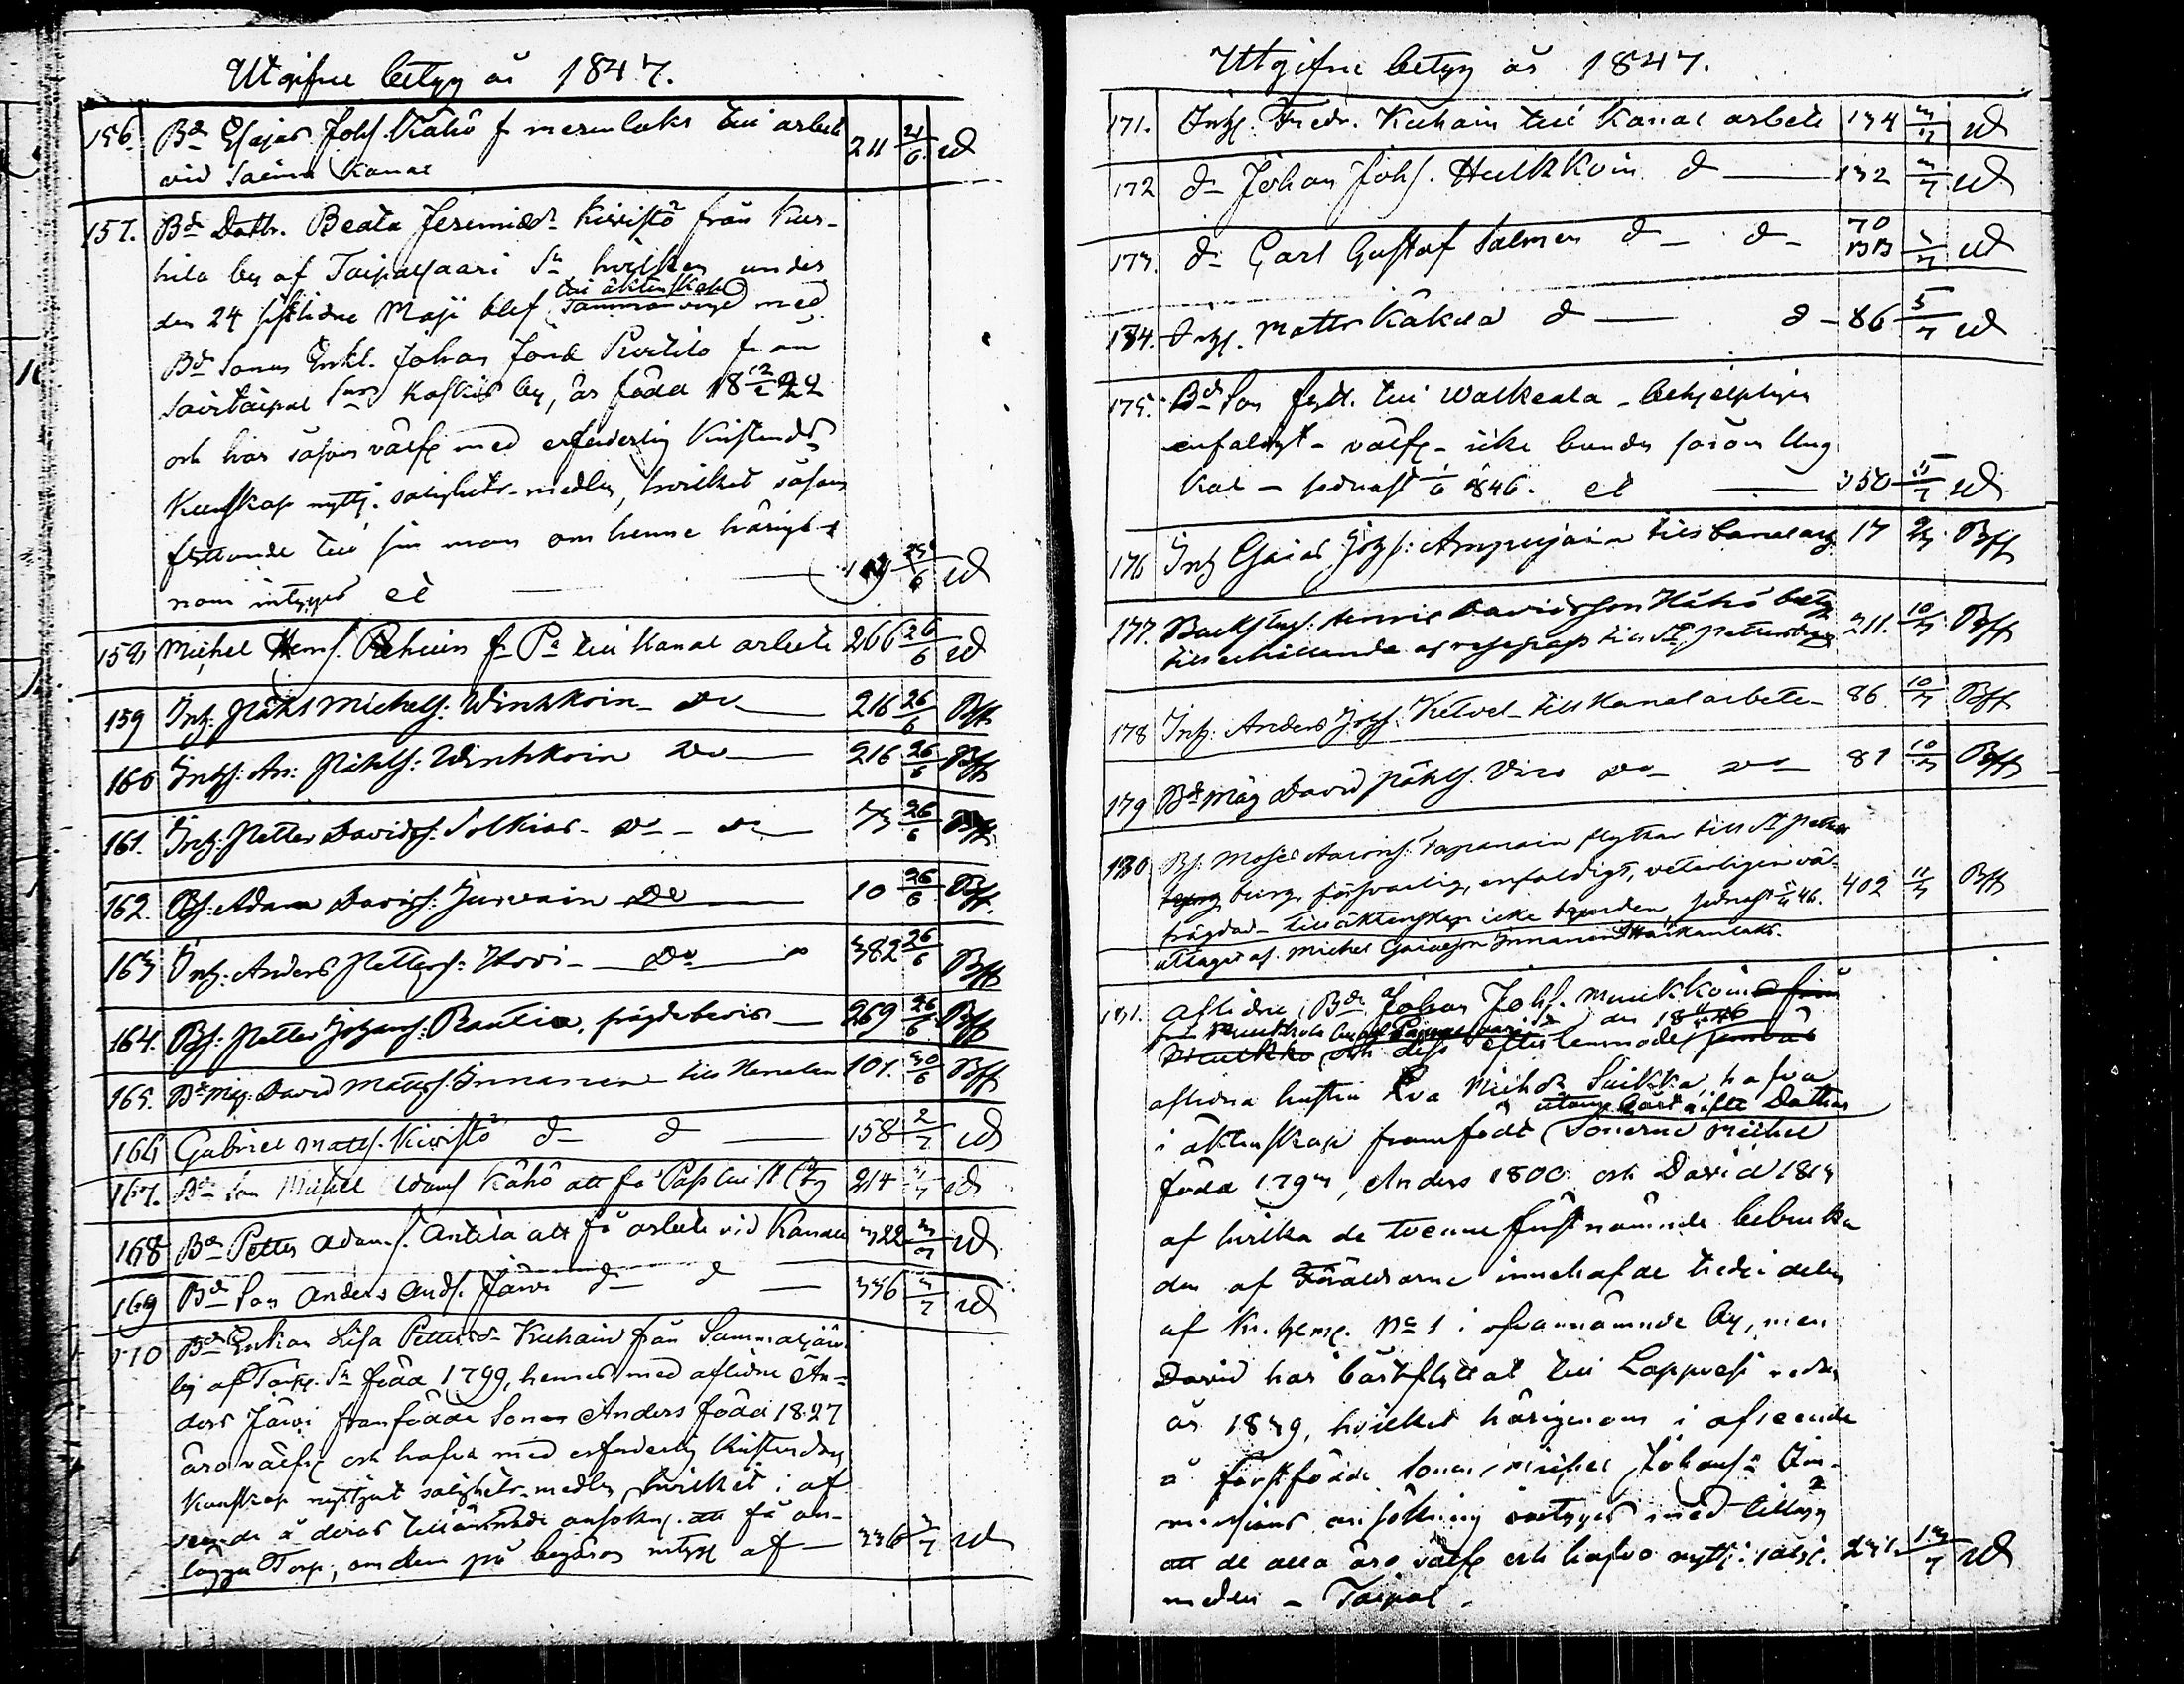 Utgifne betyg år 1847.
156. Bd Esajas Johs. Kähö fr merenlaks till arbete
vid Saima Kanal 211 21/6 ed
157. Bd Dottr. Beata Jeremiædr Kivistö från Kur-
hila by af Taipalsaari Sn hvilken under
den 24 sistlidne Maji blef
till äktenskap
Sammanvigd med
Bd Sonen Enkl. Johan Johd från
Savitaipal Sns by, är född 18 12/2 22
och har såsom välfr med erforderlig Kristend.
Kunskap nyttj. salighets-medlen, hvilket såsom
flyttande till sin man om henne härige-
nom intygas et 25/6 ed
159 Michel Hens. fr Pe till Kanal arbete 266 26/6 ed
159 Inh: Påhl Michels: Winkkoin do 216 26/6 Bff
160 Inhs: An: Påhls: Winkkoin do 216 26/6 Bff
161. Inh: Petter Davids: Solkias do do 73 26/6 Bff
162. Bs: Adam Davids: Jurvain do 10 26/6 Bff.
163 Inh: Anders Petters: Hovi do 382 26/6 Bff
164. Bs: Petter Johans: Rautia, frägdebevis 269 26/6 Bff
165. Bd Måg: David Matts: Innanen till Kanalen 101. 30/6 Bff
166 Gabriel Matts. Kivistö d d 158 2/7 ed
167. Bd Son Michel Kähö att få Pass till St Pbg 214 3/7 ed
168 Bd Petter Adams. Antila att få arbete vid Kanalen 322 3/7 ed
169 Bd Son Anders Ands. Järvi d d 336 3/7 ed
170 Bd Enkan Lisa Pettersdr Kuhain från Sammaljärvi
by af Taip. Sn född 1799, hennes med aflidne An-
ders Järvi framfödde Sonen Anders född 1827
äro välfr och hafva med erforderlig Kristendoms
Kunskap nyttjat salighets-medlen, hvilket i af-
seende å deras tillämnade ansökn. att få an-
lägga Torp, om dem på begäran intygs af 336 3/7 ed
Utgifne betyg år 1847.
171. Inhs. Fredr. Kuhain till Kanal arbete 134 3/7 ed
172 d Johan Johs. Hulkkoin d 132 3/7 ed
173. d Carl Gustaf Salmen d d 70
BB 3/7 ed
174. Inhs. Matts Käkelä d d 86 5/7 ed
175. Bd Son flytt. till Walkeala - behjelpligen
enfaldigt - välfr - icke bunden såsom Ung
Kal - sednast 1/6 1846. et 350 5/7 ed
176 Inh Esaias Johs: Ampujain till Canalarb 17 9/7 Bff
177. Backstugs. Hennric Davidsson Hähö betyg
till erhållande af resepass till St Pettersburg 211. 10/7 Bff
178 Inh: Anders Johs. Ketvel till Kanalarbete 86 10/7 Bff
179 Bd Måg David Påhls. Viro do do 81 10/7 Bff
180 Bs: Moses Aarons: Tapanain flyttar till St Petters
burg försvarlig, enfaldigt, veterligen väl-
frägdad - till äktenskap icke bunden, sednast 46. 402 11/7 Bff
uttaget af Michel Innanen
181. Aflidne Bd af Johan Johs. Munkkoin
den 18
och dess efterlemnade
aflidna hustru Eva Michdr Suikka, hafva
utom bortgifte Döttrar
i äktenskap framfödt Sönerne Michel
född 1797, Anders 1800 och David 1813
af hvilka de tvenne förstnämnde bebruka
den af Föräldrarne innehafde tredje delen
af Kr. hem. No 1 i ofvannämnde by, men
David har bortflyttat till Lappvesi redan
år 1839, hvilket härigenom i afseende
å förstfödde Sonen Michel Johans
ansökning betygas med tillägg
att de alla äro välfr och hafva nyttj. saligh. 231. 13/7 ed
medlen - Taipal.